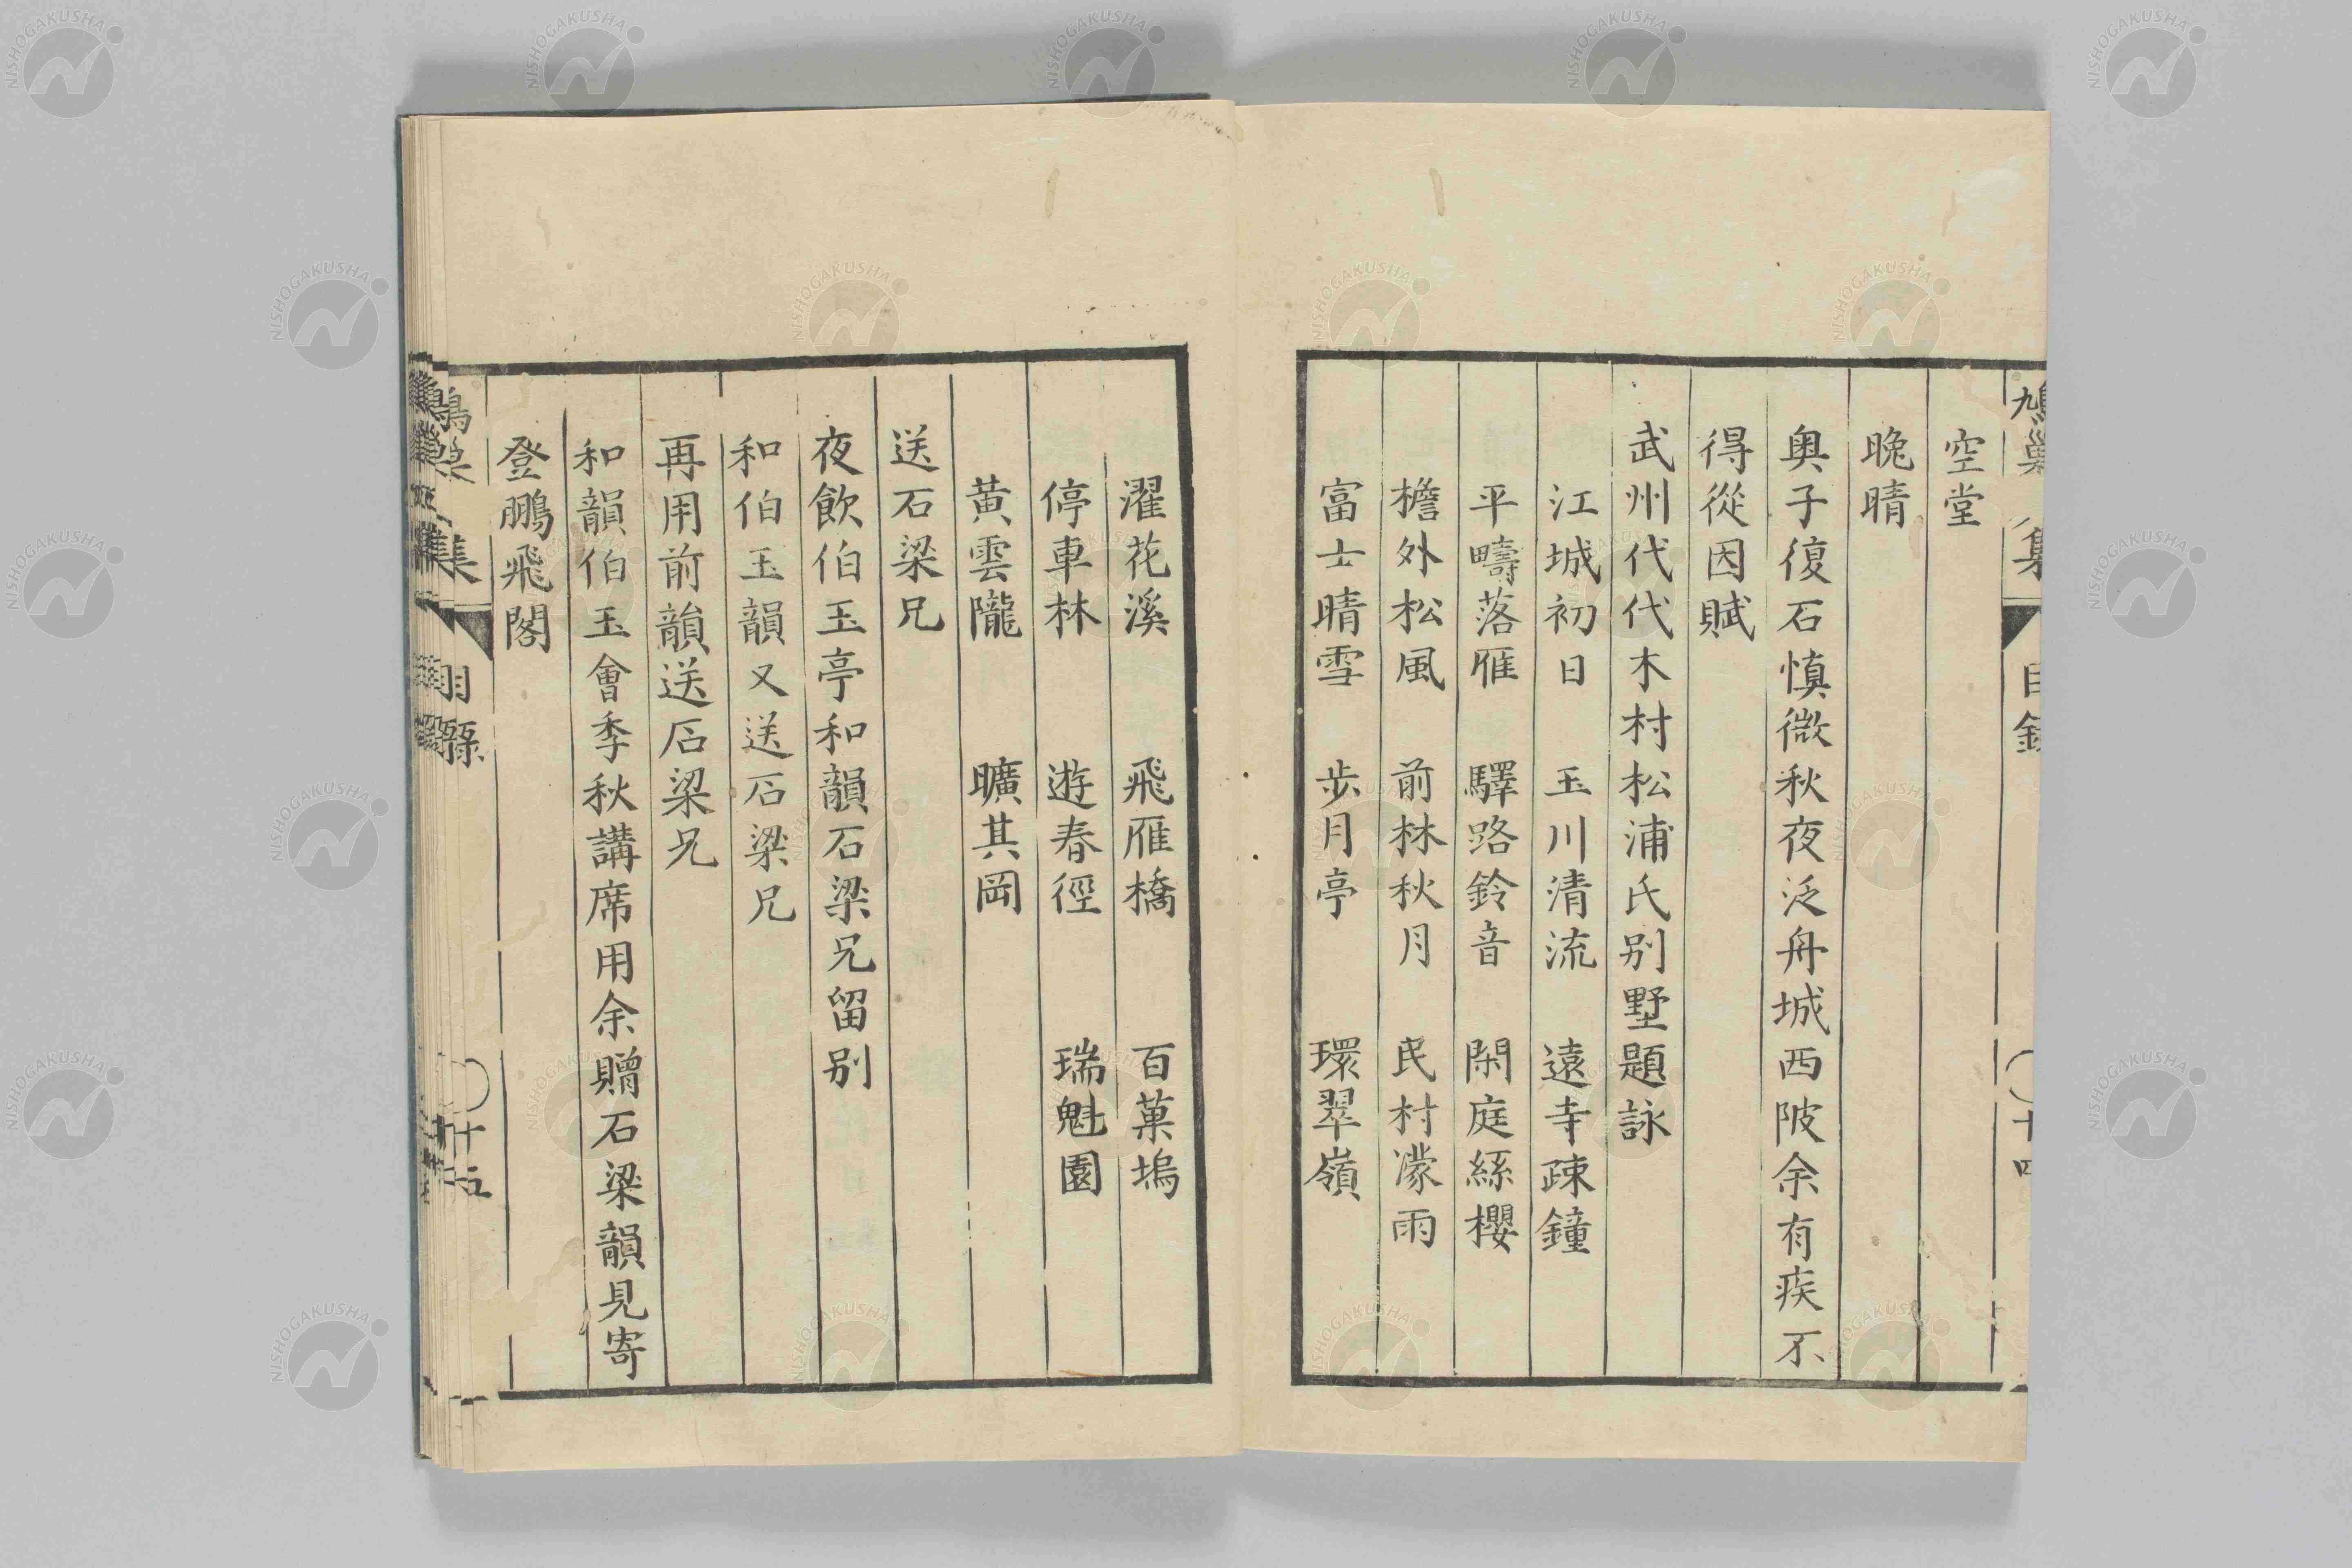 鳩巢集 目錄 十四
空堂
晚晴
奥子復石慎微秋夜泛舟城西陂余有疾不
得從因賦
武州代代木村松浦氏别墅題詠
江城初日 玉川清流 遠寺疎鐘
平疇落雁 驛路鈴音 閑庭絲櫻
檐外松風 前林秋月 民村濛雨
富士晴雪 步月亭 環翠嶺
濯花溪 飛雁橋 百菓塢
停車林 遊春徑 瑞魁園
黃雲隴 曠其岡
送石梁兄
夜飲伯玉亭和韻石梁兄留别
和伯玉韻又送石梁兄
再用前韻送石梁兄
和韻伯玉會季秋講席用余贈石梁韻見寄
登鵬飛閣
鳩巢集 目錄 十五
NISHOGAKUSHA